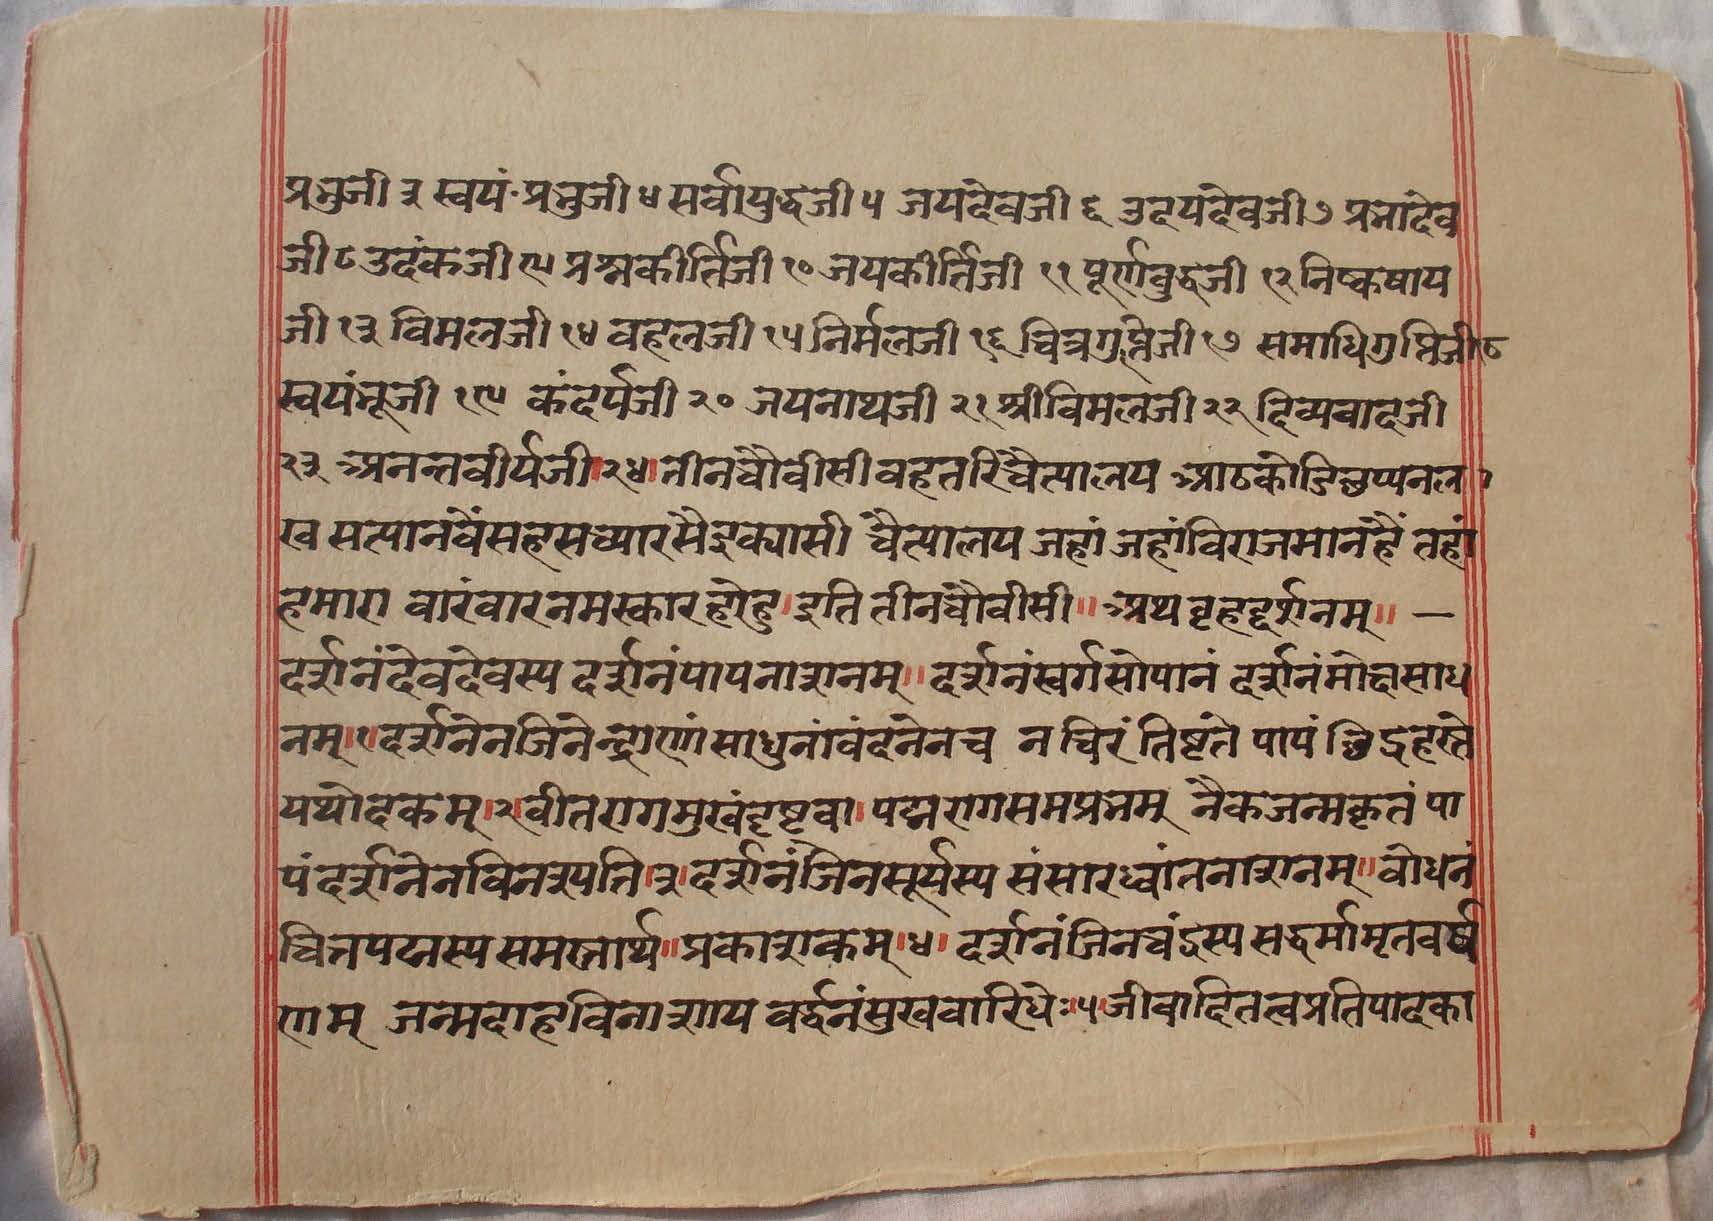 प्रभुजी ३ स्वयं प्रभुजी ४ सर्वायुद्धजी ५ जयदेवजी ६ उदयदेवजी ७ प्रभादेव
जी ८ उदंकजी ९ प्रश्नकीर्तिजी १० जयकीर्तिजी ११ पूर्णबुद्धजी १२ निष्कषाय
जी १३ विमलजी १४ वहलजी १५ निर्मलजी १६ चित्रगुप्तेजी १७ समाधिगुप्तिजी १८
स्वयंभूजी १९ कंदर्पजी २० जयनाथजी २१ श्रीविमलजी २२ दिव्यवादजी
२३ अनन्तवीर्यजी।२४। तीनचौवीसी वहतरि चैत्यालय आठकोडिछप्पनल
ख सत्यानवैंसहसच्यारसैइक्यासी चैत्यालय जहां जहांविराजमानहैं तहां
हमारा वारंवारनमस्कारहोहु। इति तीनचौवीसी॥ अथ वृहद्दर्शनम्॥ —
दर्शनंदेवदेवस्य दर्शनंपापनाशनम्॥ दर्शनंस्वर्गसोपानं दर्शनंमोक्षसाध
नम्।१। दर्शनेनजिनेन्द्राणां साधुनांवंदनेनच न चिरं तिष्टंते पापं छिद्रहस्ते
यथोदकम्।२। वीतरागमुखंदृष्ट्वा। पद्मरागसमप्रभम् नैकजन्मकृतं पा
पंदर्शनेनविनश्यति।३। दर्शनंजिनसूर्यस्य संसारध्वांतनाशनम्॥ वोधनं
चित्तपद्मस्य समस्तार्थ॥ प्रकाशकम्।४। दर्शनंजिनचंद्रस्य सद्धर्मामृतवर्ष
णम् जन्मदाहविनाशाय वर्द्धनंसुखवारिधेः।५। जीवादितत्वप्रतिपादका